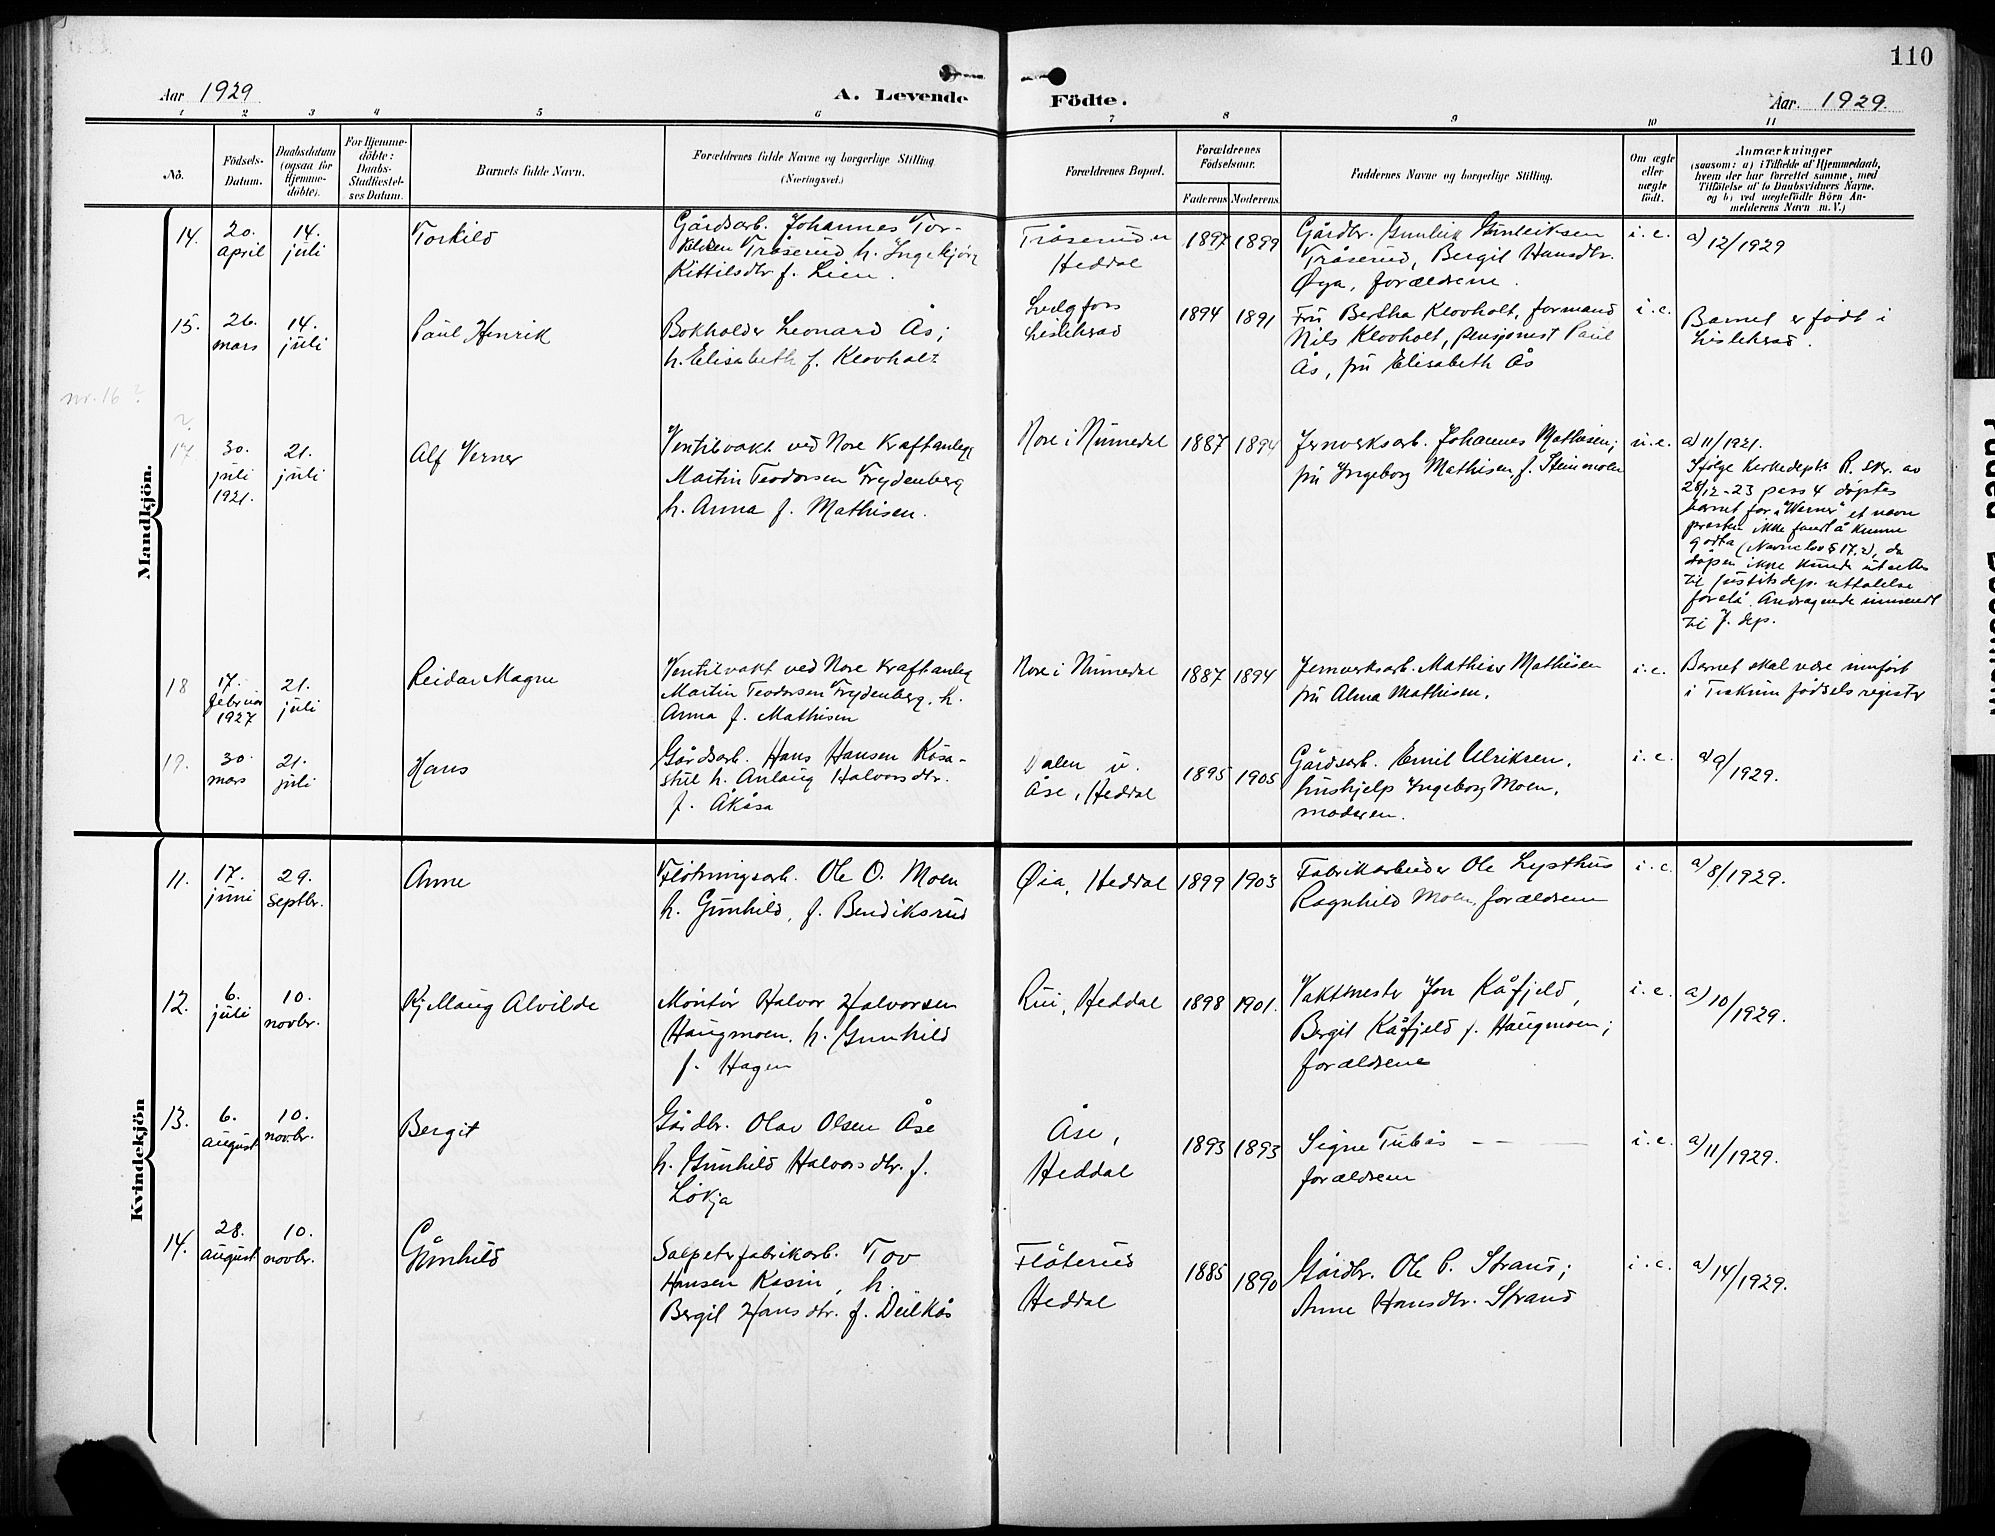 110
Aar 1929
A. Levende Födte.
Aar. 1929.
1 2 3 4 5 6 7 8 9 10 11
No.
Födsels-Datum.
Daabsdatum (ogsaa for Hjemme-döbte).
For Hjemme-döbte: Daabs-Stadfæstel-ses Datum.
Barnets fulde Navn.
Forældrenes fulde Navne og borgerlige Stilling (Næringsvei.)
Forældrenes Bopæl.
Forældrenes Födselsaar.
Faderens Moderens
Faddernes Navne og borgerlige Stilling.
Om ægte eller uægte födt.
Anmærkninger
(saasom: a) i Tilfælde af Hjemmedaab,
hvem der har forrettet samme, med
Tilföielse af to Daabsvidners Navne,
og b) ved uægtefödte Börn An-
melderens Navn m. V.)
Mandkjön.
14.
20. april
14. juli
Torkild
Gårdsarb. Johannes Tor-
kildsen Tråserud h. Ingebjörg
Kittilsdtr. f. Lien.
Tråserud u
Heddal
1897 1899
Gårdbr. Gunleik Gunleiksen
Tråserud, Bergit Hansdtr.
Øya, forældrene.
i. e.
a) 12/1929
15.
26. mars
14. juli
Paul Henrik
Bokholder Leonard Ås;
h. Elisabeth f. Klovholt
Svelgfoss
Lisleherad
1894 1891
Fru Bertha Klovholt, formand
Nils Klovholt, pensjonist Paul
Ås, fru Elisabeth Ås
i. e.
Barnet er født i
Lisleherad.
nr. 16?
17
30. juli 1921.
21. juli
Alf Verner
Ventilvakt ved Nore Kraftanlegg
Martin Teodorsen Frydenberg
h. Anna f. Mathisen.
Nore i Numedal
1887 1894
Jernverksarb. Johannes Mathisen;
fru Ingeborg Mathisen f. Steinmoen
u. e.
a) 11/1921.
Ifølge Kirkedepts R. skr. av
28/12-23 pass 4 døptes
barnet for "Werner" et navn
presten ikke fandt å kunne
godta (Navnelov § 17.2), da
dåpen ikke kunde utsettes
til justitsdep. uttalelse
forelå. Andragende innsendt
til J. dep.
18
17. februar 1927
21. juli
Reidar Magne
Ventilvakt ved Nore kraftanleg
Martin Teodorsen Frydenberg. h.
Anna f. Mathisen
Nore i Numedal
1887 1894
Jernverksarb. Mathias Mathisen
fru Alma Mathisen.
i. e.
Barnet skal være innført
i Tiskum fødselsregister
19.
30. mars
21. juli
Hans
Gårdsarb. Hans Hansen Kåsa-
stul h. Anlaug Halvorsdtr.
f. Åkåsa
Dalen u.
Åse, Heddal
1895 1905
Gårdsarb. Emil Ulriksen,
hushjelp Ingeborg Moen,
moderen.
i. e.
a) 9/1929.
Kvindekjön
11.
17. juni
29. septbr.
Anne
Fløtningsarb. Ole O. Moen
h. Gunhild, f. Bendiksrud
Øia, Heddal
1899 1903
Fabrikarbeider Ole Lysthus
Ragnhild Moen, forældrene
i. e.
a) 8/1929.
12.
6. juli
10. novbr.
Kjellaug Alvilde
Montør Halvor Halvorsen
Haugmoen, h. Gunhild
f. Hagen
Rui, Heddal
1898 1901.
Vaktmester Jon Kåfjeld,
Bergit Kåfjeld f. Haugmoen;
forældrene
i. e.
a) 10/1929.
13.
6. august
10. novbr.
Bergit
Gårdbr. Olav Olsen Åse
h. Gunhild Halvorsdtr. f.
Løkja
Åse,
Heddal
1893 1893
Signe Tubås
forældrene
i. e.
a) 11/1929.
14.
28. august
10. novbr.
Gunhild
Salpeterfabrikarb. Tov
Hansen Kasin, h.
Bergit Hansdtr. f. Deilkås
Flåterud
Heddal
1885 1890
Gårdbr. Ole P. Strand;
Anne Hansdtr. Strand
i. e.
a) 14/1929.